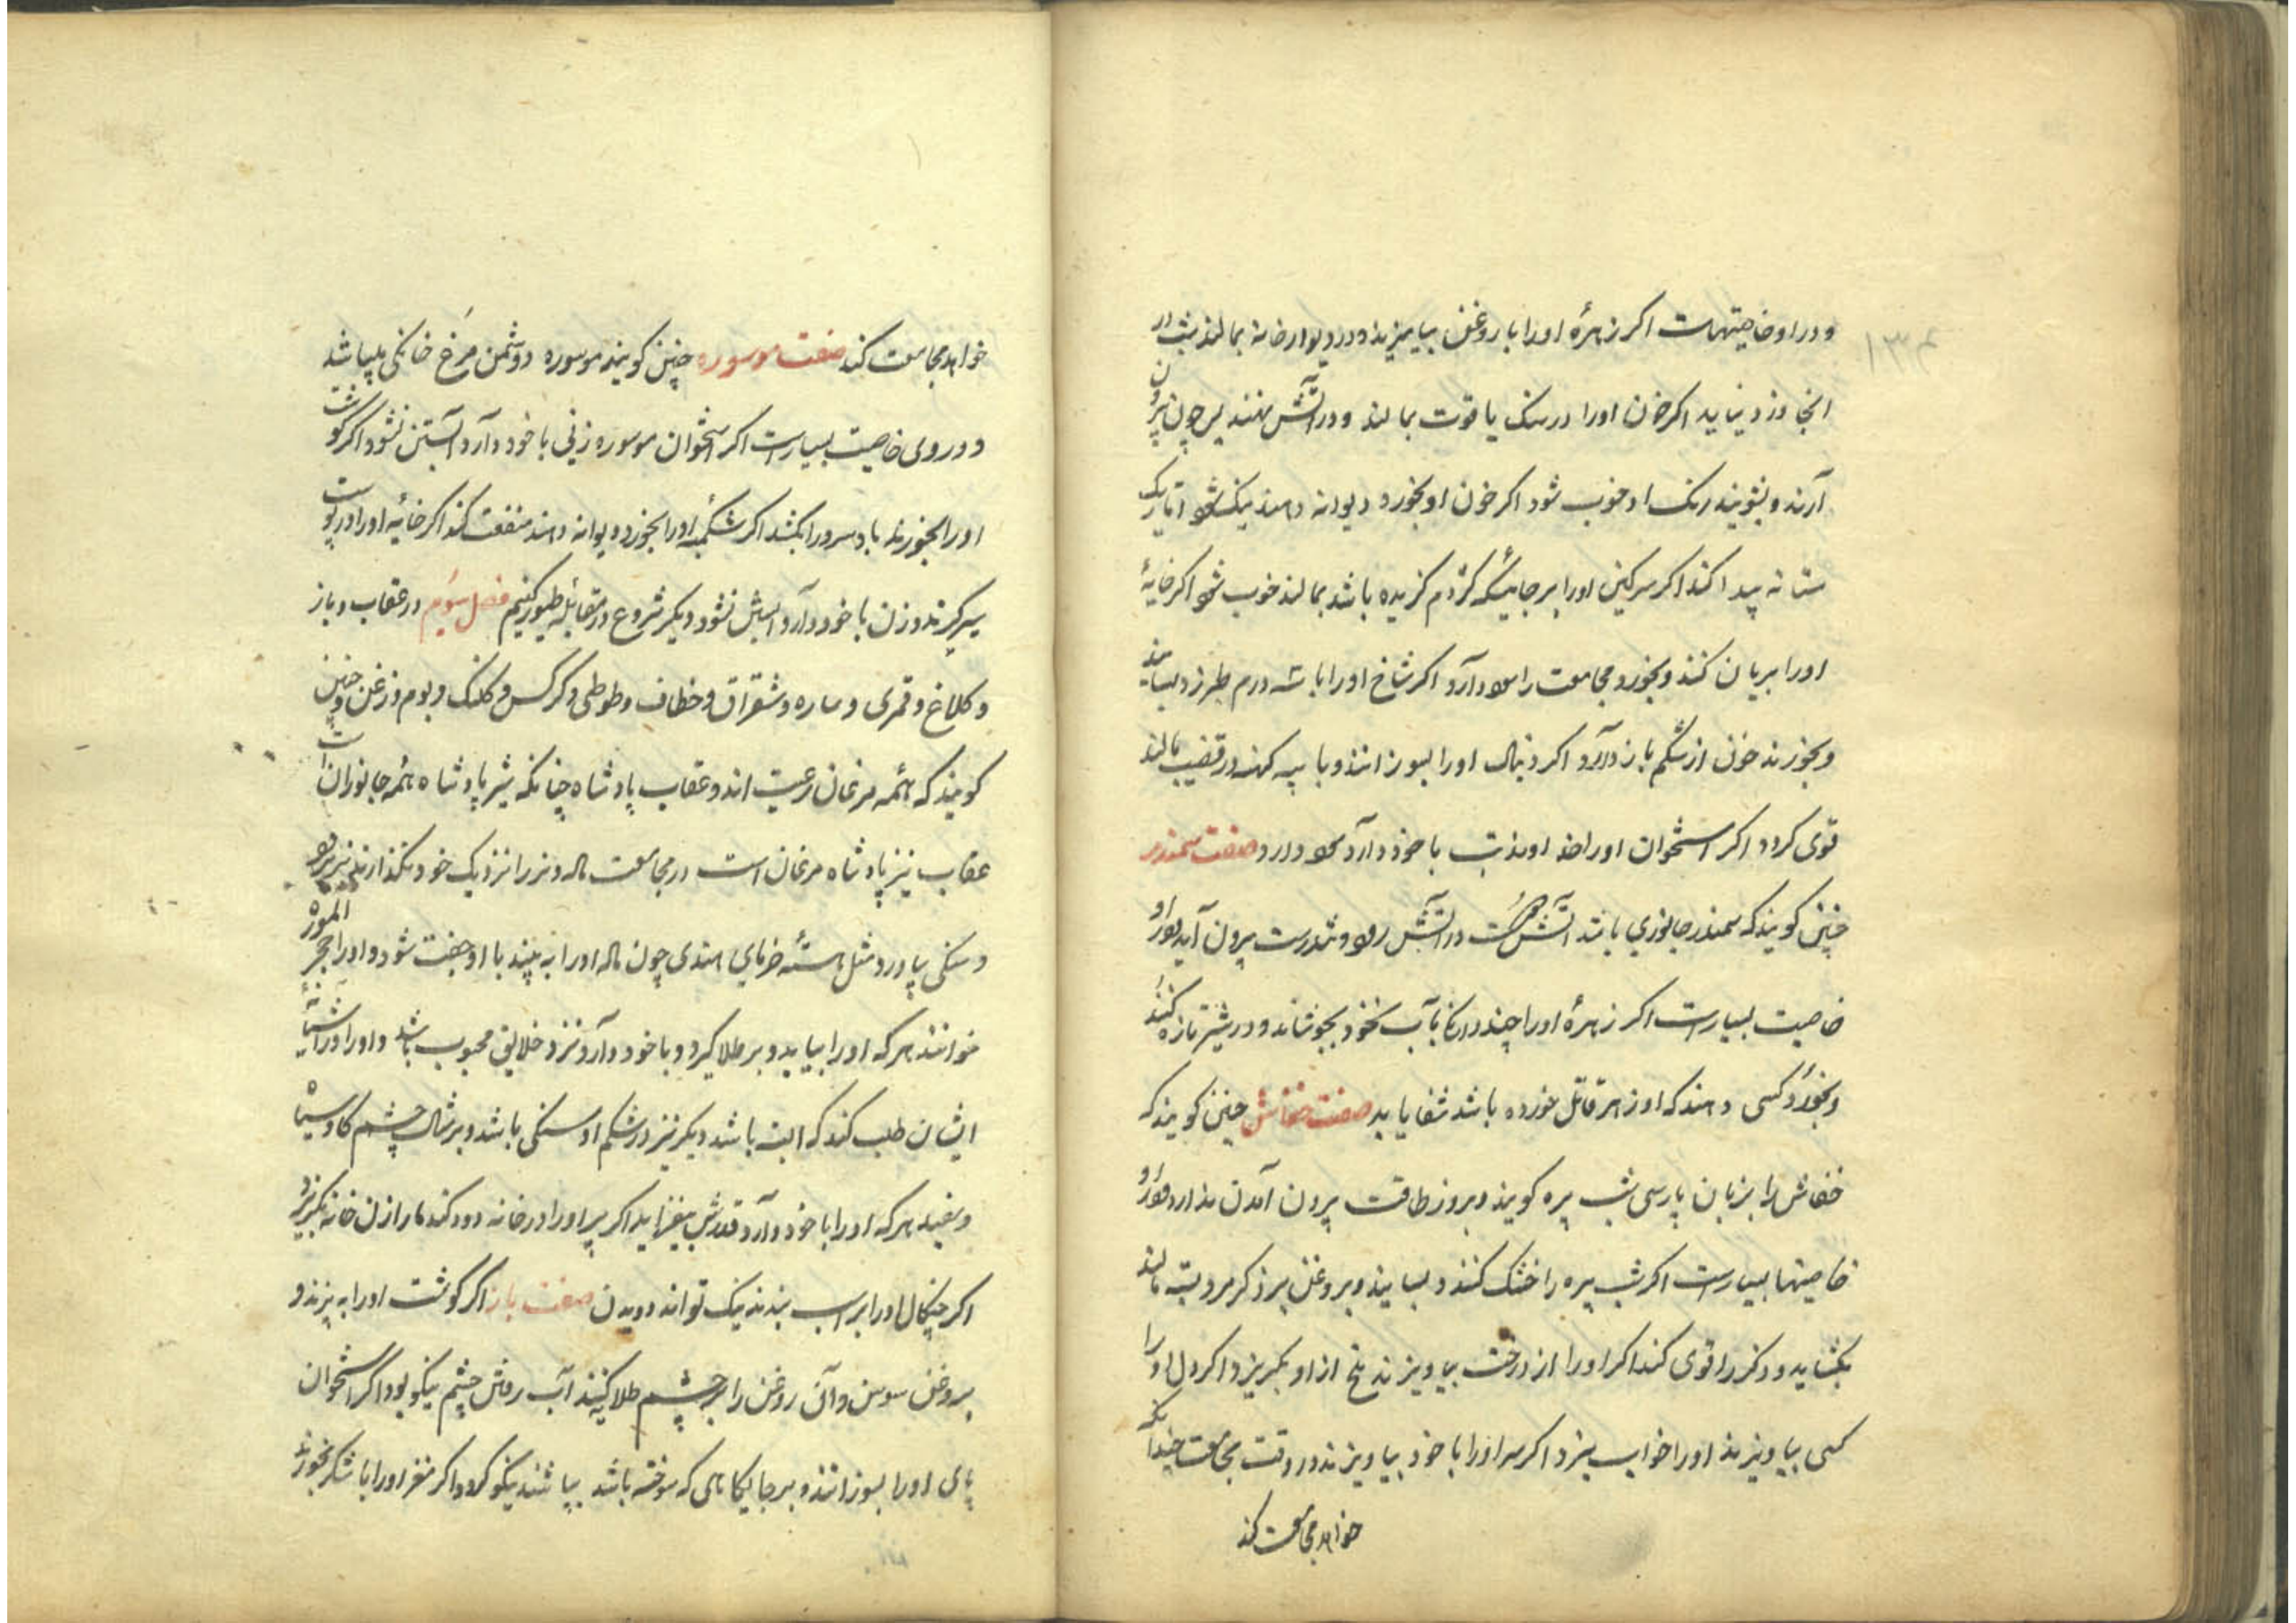 ۱۳۴
و در او خاصیتهاست اکر زهرهٔ اورا با روغن بیامیزند و در دیوار خانه بمالند شب در
انجا دزد نیاید اکر خون اورا در سنک یاقوت بمالند و در آتش نهند پس چون برون
آرند و بشویند رنک او خوب شود اکر خون او بخورد دیوانه دهند نیک شود تاریک
پیدا کند اکر سرکین اورا بر جائیکه کژدم کزیده باشد بمالند خوب شود اکر خایهٔ
اورا بریان کنند و بخورد مجامعت را سود دارد اکر شاخ اورا با سه درم طبرزد بسایند
و بخورند خون از شکم باز دارد اکر دنبال اورا بسوزانند و با پیه کهنه در قضیب بمالند
قوی کردد اکر استخوان اورا خداوند تب با خود دارد سود دارد صفت سمندر
چنین کویند که سمندر جانوری باشد آتش در آتش رود و تندرست بیرون آید و اورا
خاصیت بسیارست اکر زهرهٔ اورا چند دانک بآب نخود بجوشاند و در شیر تازه کنند
و بخورد کسی دهند که او زهر قاتل خورده باشد شفا یابد صفت خفاش چنین کویند که
خفاش را بزبان پارسی شب پره کویند و بروز طاقت بیرون آمدن ندارد و اورا
خاصیتها بسیارست اکر شب پره را خشک کنند و بسایند و بروغن بر ذکر مرد بسته مالند
بکشاید و ذکر را قوی کند اکر اورا از درخت بیاویزند ملخ از او بکریزد اکر دل اورا
کسی بیاویزند اورا خواب نبرد اکر سر اورا با خود بیاویزند در وقت مجامعت چندانکه
خواهد مجامعت کند
خواهد مجامعت کند صفت موسوره چنین کویند موسوره دوشمن مرغ خانکی میباشد
و در وی خاصیت بسیارست اکر استخوان موسوره زنی با خود دارد آبستن نشود اکر کوشت
اورا بخورند باد سرد را بکشد اکر شکمبهٔ اورا بخورد دیوانه دهند منفعت کند اکر خایهٔ اورا در پوست
کیرند و زن با خود دارد آبستن نشود دیکر شروع در مقابله طیور کنیم فصل سویم در عقاب و باز
و کلاغ و قمری و ساره و شقراق و خطاف و طوطی و کرکس و کلنک و بوم و زغن و چنین
کویند که همه مرغان رعیت اند و عقاب پادشاه چنانکه شیر پادشاه همه جانوران است
عقاب نیز پادشاه مرغان است در مجامعت ماده و نر را نزدیک خود نکذارند
و سنکی بیاورد مثل هستهٔ خرمای هندی چون ماده اورا به بیند با او جفت شود و اورا حجر
خوانند هر که اورا بیابد و بر طلا کیرد و با خود دارد نزد خلایق محبوب باشد و اورا در آشیانهٔ
ایشان طلب کند که البته باشد دیکر نیز در شکم او سنکی باشد و بر مثال چشم کاو سیاه
و سفید هر که اورا با خود دارد قدرش بیفزاید اکر پر اورا در خانه دود کند مار از آن خانه بکریزد و
اکر چنکال اورا بر اسب بندند نیک تواند دویدن صفت باز اکر کوشت اورا به پزند و
بروغن سوسن و آن روغن را بر چشم طلا کنند آب رفتن چشم نیکو بود اکر استخوان
پای اورا بسوزانند و بر جایکاهی که سوخته باشد بپاشند نیکو کردد اکر مغز اورا با شکر بخورند